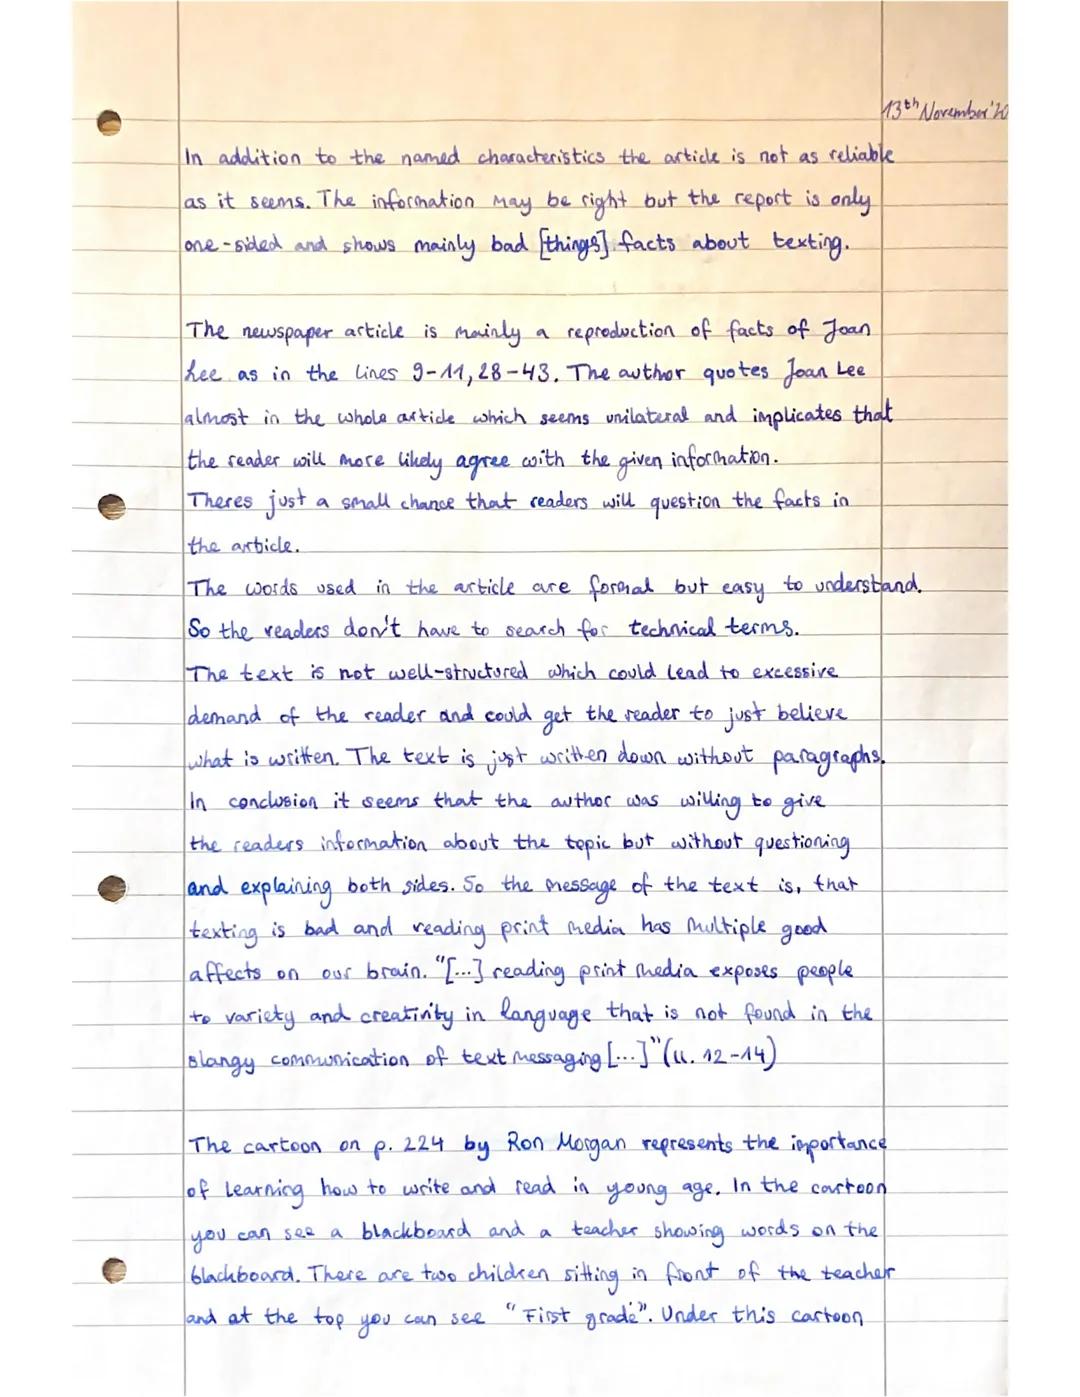 13th November'20
In addition to the named characteristics the article is not as reliable
as it seems. The information may be right but the report is only
one-sided and shows mainly bad [things] facts about texting.
The newspaper article is mainly a reproduction of facts of Joan
Lee as in the lines 9-11, 28-43. The author quotes Joan Lee
almost in the whole article which seems unilateral and implicates that
the reader will more likely agree with the given information.
Theres just a small chance that readers will question the facts in
the article.
The words used in the article are formal but easy to understand.
So the readers don't have to search for technical terms.
The text is not well-structured which could lead to excessive
demand of the reader and could get the reader to just believe
what is written. The text is just written down without paragraphs.
In conclusion it seems that the author was willing to give
the readers information about the topic but without questioning
and explaining both sides. So the message of the text is, that
texting is bad and reading print media has multiple good
affects on our brain. "[...] reading print media exposes people
to variety and creativity in language that is not found in the
slangy communication of text messaging [...]" (ll. 12-14)
The cartoon on p. 224 by Ron Morgan represents the importance
of learning how to write and read in young age. In the cartoon
you can see a blackboard and a teacher showing words on the
blackboard. There are two children sitting in front of the teacher
and at the top you can see "First grade". Under this cartoon